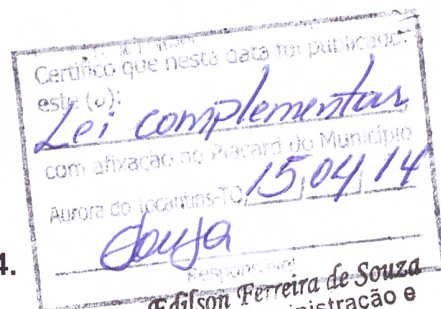 Certifico que nesta data foi publicado
este (a):
Lei complementar
com afixação no Placard do Município
Aurora do Tocantins-TO, 15 04 14
Souza
Responsável
4.
Edilson Ferreira de Souza
nistração e